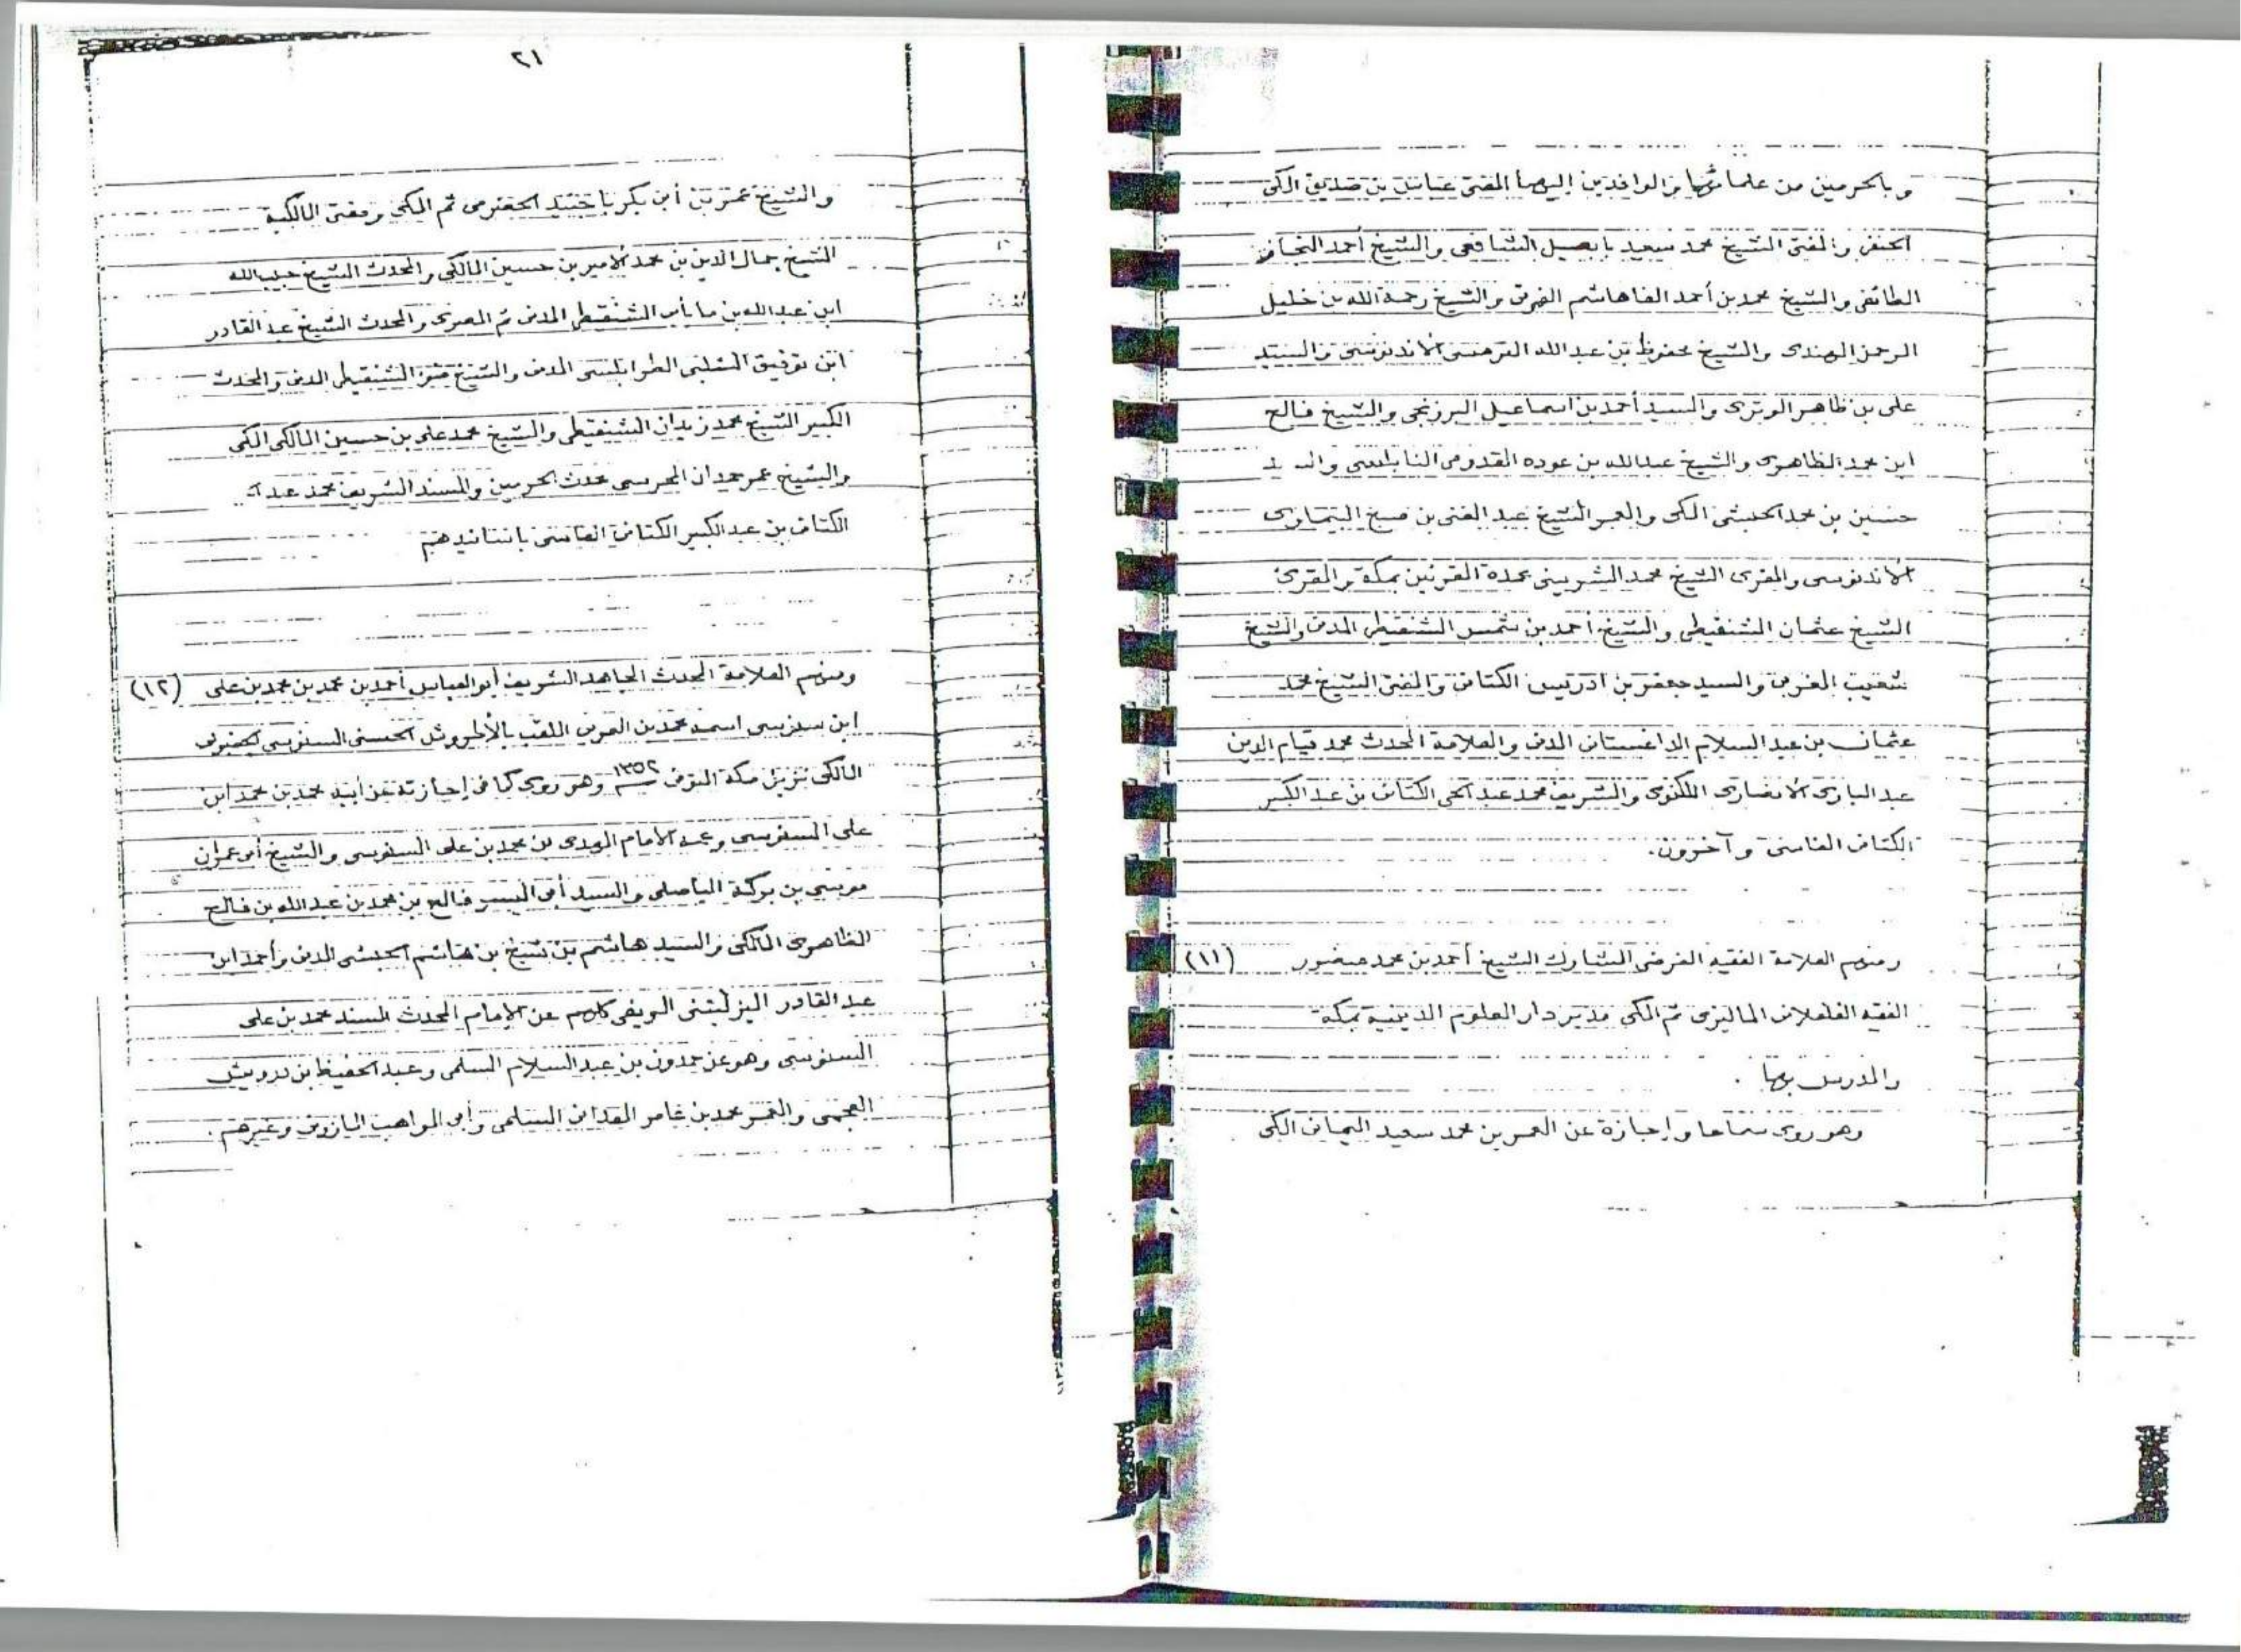 وبالحرمين من علمائها والوافدين إليهما المفتى عباس بن صديق المكى
الحنفى والمفتى الشيخ محمد سعيد بابصيل الشافعى والشيخ أحمد النجار
الطائفى والشيخ محمد بن أحمد الفاهاشم الفوتى والشيخ رحمة الله بن خليل
الرحمن الهندى والشيخ محفوظ بن عبد الله الترمسى الأندنوسى والسيد
على بن ظاهر الوترى والسيد أحمد بن اسماعيل البرزنجى والشيخ فالح
ابن محمد الظاهرى والشيخ عبد الله بن عوده القدومى النابلسى والسيد
حسين بن محمد الحبشى المكى والمعمر الشيخ عبد الغنى بن صبح البيماوى
الأندنوسى والمقرى الشيخ محمد الشربينى عمدة المقرئين بمكة والمقرئ
الشيخ عثمان الشنقيطى والشيخ أحمد بن شمس الشنقيطى المدنى والشيخ
شعيب المغربى والسيد جعفر بن ادريس الكتانى والمفتى الشيخ محمد
عثمان بن عبد السلام الداغستانى المدنى والعلامة المحدث محمد قيام الدين
عبد البارى الأنصارى اللكنوى والشريف محمد عبد الحى الكتانى بن عبد الكبير
الكتانى الفاسى وآخرون.
ومنهم العلامة الفقيه الفرضى المشارك الشيخ أحمد بن محمد منصور (١١)
الفقيه الفلفلانى الماليزى ثم المكى مدير دار العلوم الدينية بمكة
والمدرس بها .
وهو روى سماعا وإجازة عن المعمر بن محمد سعيد اليمانى المكى
٢١
والشيخ عمر بن أبى بكر باجنيد الحضرمى ثم المكى ومفتى المالكية
الشيخ جمال الدين بن محمد الأمير بن حسين المالكى والمحدث الشيخ حبيب الله
ابن عبد الله بن مايأبى الشنقيطى المدنى ثم المصرى والمحدث الشيخ عبد القادر
ابن توفيق الشلبى الطرابلسى المدنى والشيخ الشنقيطى المدنى والمحدث
الكبير الشيخ محمد زيدان الشنقيطى والشيخ محمد على بن حسين المالكى المكى
والشيخ عمر حمدان المحرسى محدث الحرمين والمسند الشريف محمد عبد
الكتانى بن عبد الكبير الكتانى الفاسى بأسانيدهم
ومنهم العلامة المحدث المجاهد الشريف أبو العباس أحمد بن محمد بن محمد بن على (١٢)
ابن سنوسى اسمه محمد بن العربى الملقب بالأطروش الحسنى السنوسى الجغبوبى
المالكى نزيل مكة المتوفى سنة ١٣٥٢ وهو روى كما فى إجازته عن أبيه محمد بن محمد ابن
على السنوسى وعمه الأمام المهدى بن محمد بن على السنوسى والشيخ أبى عمران
موسى بن بركة الياصلى والسيد أبى اليسر فالح بن محمد بن عبد الله بن فالح
الظاهرى المالكى والسيد هاشم بن شيخ بن هاشم الحبشى المدنى وأحمد ابن
عبد القادر اليزليتنى الريفى كلهم عن الإمام المحدث المسند محمد بن على
السنوسى وهو عن حمدون بن عبد السلام السلمى وعبد الحفيظ بن درويش
العجمى والمعمر محمد بن عامر المعدانى السلمى وأبى المواهب المازونى وغيرهم .